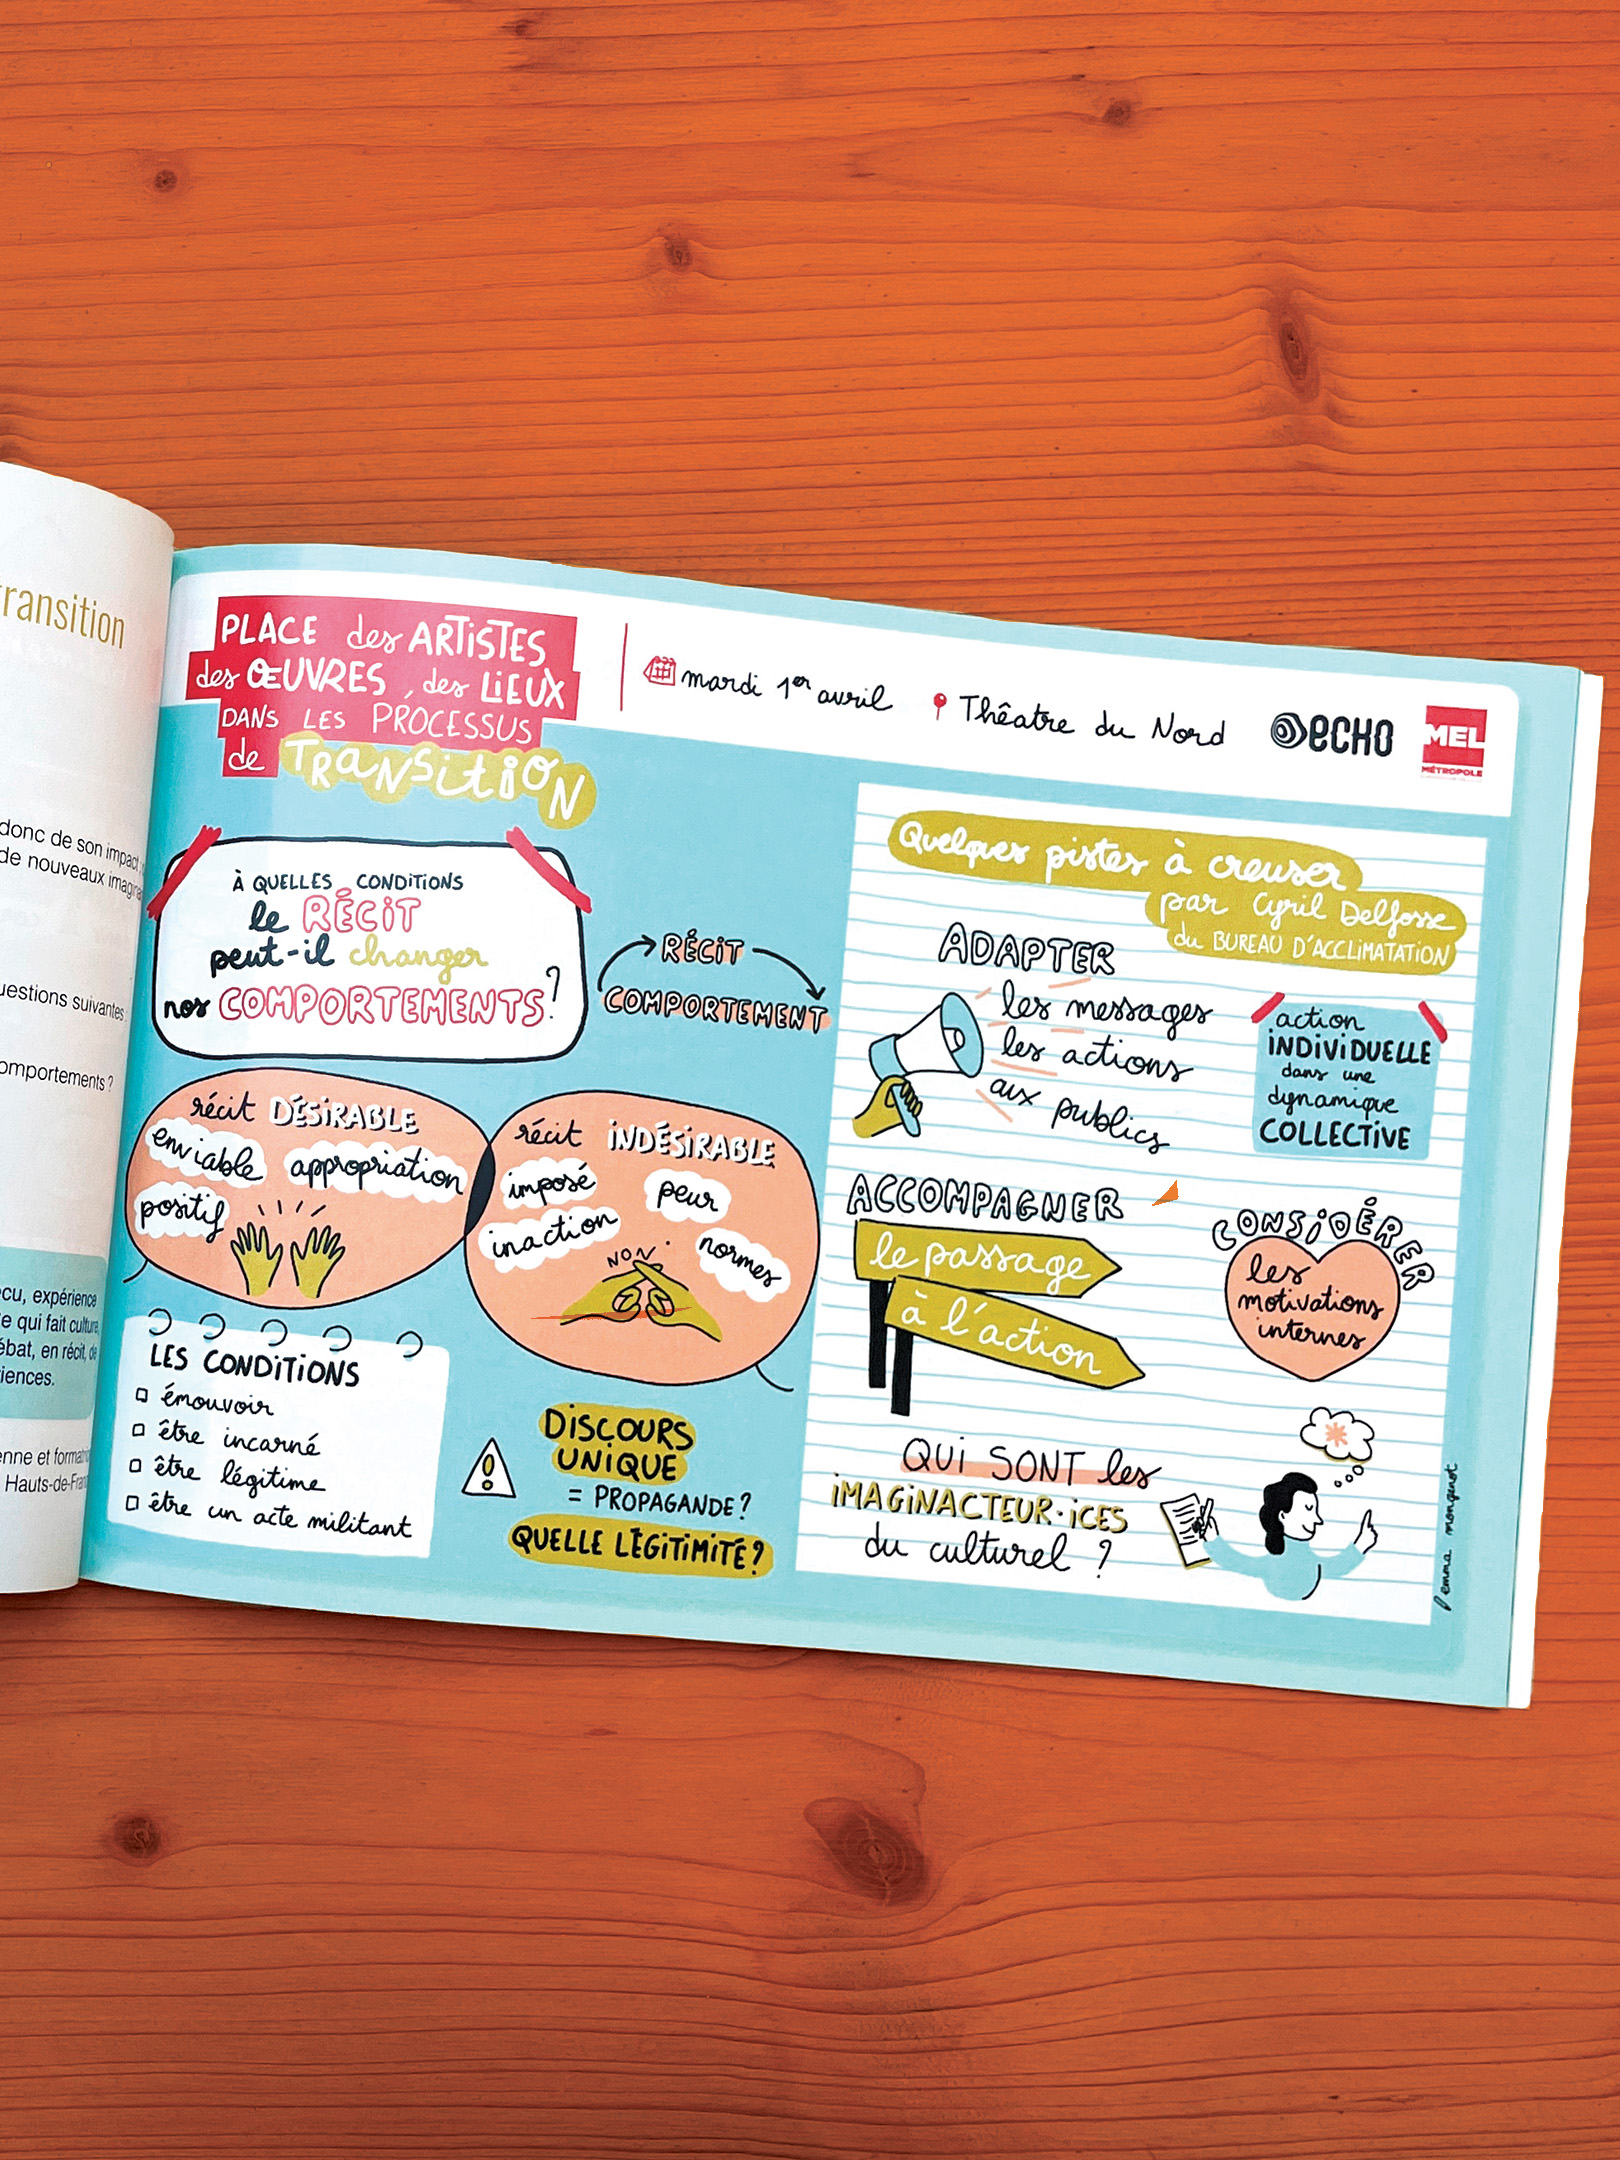 ransition
donc de son impact
de nouveaux
uestions suivantes
omportements ?
cu, expérience
e qui fait culture,
ébat, en récit, de
iences.
enne et
Hauts-de-Fran
PLACE des ARTiSTES
des ŒUVRES, des LiEUX
DANS LES PROCESSUS
de TRANSiTiON
mardi 1er avril
Thêatre du Nord
ECHO
MEL
MÉTROPOLE
À QUELLES CONDiTiONS
le RÉCiT
peut-il changer
nos COMPORTEMENTS ?
RÉCiT
COMPORTEMENT
récit DÉSiRABLE
enviable appropriation
positif
récit iNDÉSiRABLE
imposé peur
inaction normes
NON
LES CONDiTiONS
émouvoir
être incarné
être légitime
être un acte militant
DiSCOURS
UNiQUE
= PROPAGANDE ?
QUELLE LÉGiTiMiTÉ ?
Quelques pistes à creuser
par Cyril Delfosse
du BUREAU D'ACCLiMATATiON
ADAPTER
les messages
les actions
aux publics
action
iNDiViDUELLE
dans une
dynamique
COLLECTiVE
ACCOMPAGNER
le passage
à l'action
CONSiDÉRER
les
motivations
internes
QUi SONT les
iMAGiNACTEUR·iCES
du culturel ?
emma mongenot